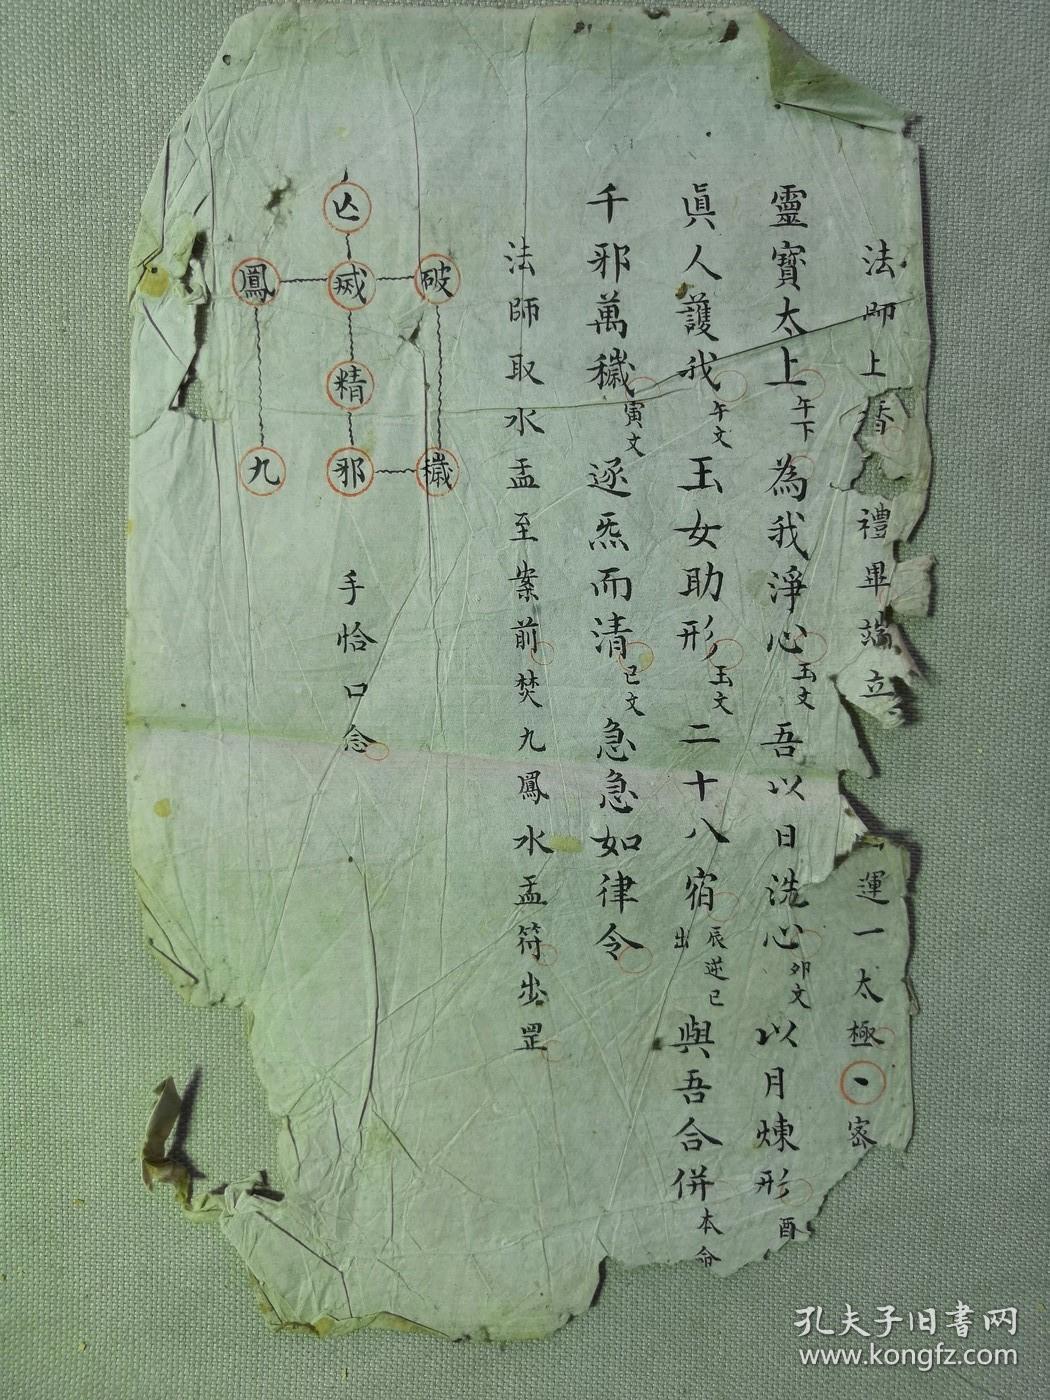 法師上香禮畢端立運一太極丶密
靈寶太上午下為我淨心玉文吾以日洗心卯文以月煉形酉
眞人護我午文玉女助形玉文二十八宿辰逆巳出與吾合併本命
千邪萬穢寅文逐炁而清巳文急急如律令
法師取水盂至案前焚九鳳水盂符出罡
破穢
滅精邪
手恰口念
鳳九
孔夫子旧书网
www.kongfz.com